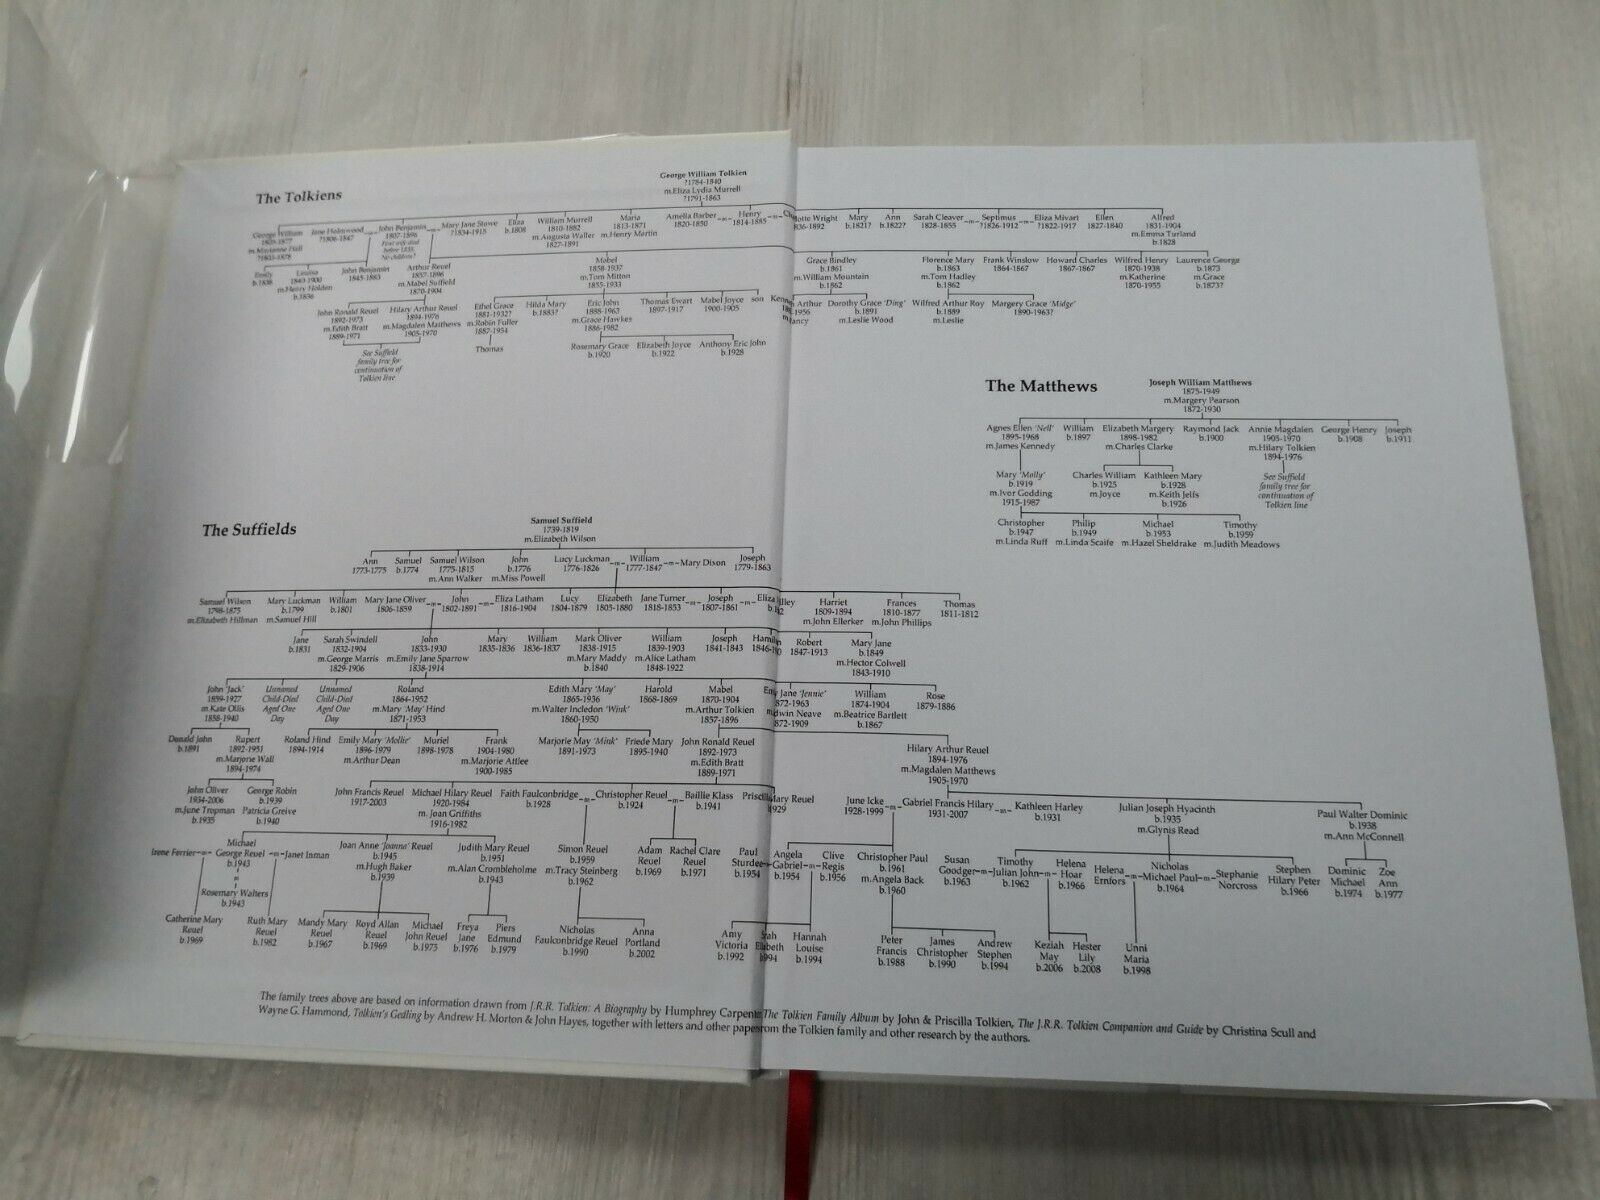 The Tolkiens
George William Tolkien
?1784-1840
m.Eliza Lydia Murrell
?1791-1863
George William
m.Marianne Hall
?1803-1878
Jane Holmwood
?1806-1847
John Benjamin
1807-1896
First wife died
before 1855.
No children?
Mary Jane Stowe
?1834-1915
Eliza
b.1808
William Murrell
1810-1882
m.Augusta Waller
1827-1891
Maria
1813-1871
m.Henry Martin
Amelia Barber
1820-1850
Henry
1814-1885
otte Wright
836-1892
Mary
b.1821?
Ann
b.1822?
Sarah Cleaver
1828-1855
Septimus
?1826-1912
Eliza Mivart
?1822-1917
Ellen
1827-1840
Alfred
1831-1904
m.Emma Turland
b.1828
Emily
b.1838
Louisa
1840-1900
m.Henry Holden
b.1836
John Benjamin
1845-1883
Arthur Reuel
1857-1896
m.Mabel Suffield
1870-1904
Mabel
1858-1937
m.Tom Mitton
1855-1933
Grace Bindley
b.1861
m.William Mountain
b.1862
Florence Mary
b.1863
m.Tom Hadley
b.1862
Frank Winslow
1864-1867
Howard Charles
1867-1867
Wilfred Henry
1870-1938
m.Katherine
1870-1955
Laurence George
b.1873
m.Grace
b.1873?
John Ronald Reuel
1892-1973
m.Edith Bratt
1889-1971
Hilary Arthur Reuel
1894-1976
m.Magdalen Matthews
1905-1970
See Suffield
family tree for
continuation of
Tolkien line
Ethel Grace
1881-1932?
m.Robin Fuller
1887-1954
Thomas
Hilda Mary
b.1883?
Eric John
1888-1963
m.Grace Hawkes
1886-1982
Thomas Ewart
1897-1917
Mabel Joyce
1900-1905
son
Arthur
1956
Dorothy Grace 'Ding'
b.1891
m.Leslie Wood
Wilfred Arthur Roy
b.1889
m.Leslie
Margery Grace 'Midge'
1890-1963?
Rosemary Grace
b.1920
Elizabeth Joyce
b.1922
Anthony Eric John
b.1928
The Matthews
Joseph William Matthews
1875-1949
m.Margery Pearson
1872-1930
Agnes Ellen 'Nell'
1895-1968
m.James Kennedy
William
b.1897
Elizabeth Margery
1898-1982
m.Charles Clarke
Raymond Jack
b.1900
Annie Magdalen
1905-1970
m.Hilary Tolkien
1894-1976
See Suffield
family tree for
continuation of
Tolkien line
George Henry
b.1908
Joseph
b.1911
Mary 'Molly'
b.1919
m.Ivor Godding
1915-1987
Charles William
b.1925
m.Joyce
Kathleen Mary
b.1928
m.Keith Jelfs
b.1926
Christopher
b.1947
m.Linda Ruff
Philip
b.1949
m.Linda Scaife
Michael
b.1953
m.Hazel Sheldrake
Timothy
b.1959
m.Judith Meadows
The Suffields
Samuel Suffield
1739-1819
m.Elizabeth Wilson
Ann
1773-1775
Samuel
b.1774
Samuel Wilson
1775-1815
m.Ann Walker
John
b.1776
m.Miss Powell
Lucy Luckman
1776-1826
William
1777-1847
Mary Dixon
Joseph
1779-1863
Samuel Wilson
1798-1875
m.Elizabeth Hillman
Mary Luckman
b.1799
m.Samuel Hill
William
b.1801
Mary Jane Oliver
1806-1859
John
1802-1891
Eliza Latham
1816-1904
Lucy
1804-1879
Elizabeth
1805-1880
Jane Turner
1818-1853
Joseph
1807-1861
Eliza
Harriet
1809-1894
m.John Ellerker
Frances
1810-1877
m.John Phillips
Thomas
1811-1812
Jane
b.1831
Sarah Swindell
1832-1904
m.George Marris
1829-1906
John
1833-1930
m.Emily Jane Sparrow
1838-1914
Mary
1835-1836
William
1836-1837
Mark Oliver
1838-1915
m.Mary Maddy
b.1840
William
1839-1903
m.Alice Latham
1848-1922
Joseph
1841-1843
Robert
1847-1913
Mary Jane
b.1849
m.Hector Colwell
1843-1910
John 'Jack'
1859-1927
m.Kate Ollis
1858-1940
Unnamed
Child-Died
Aged One
Day
Unnamed
Child-Died
Aged One
Day
Roland
1864-1952
m.Mary 'May' Hind
1871-1953
Edith Mary 'May'
1865-1936
m.Walter Incledon 'Wink'
1860-1950
Harold
1868-1869
Mabel
1870-1904
m.Arthur Tolkien
1857-1896
Jane 'Jennie'
872-1963
dwin Neave
872-1909
William
1874-1904
m.Beatrice Bartlett
b.1867
Rose
1879-1886
Donald John
b.1891
Rupert
1892-1951
m.Marjorie Wall
1894-1974
Roland Hind
1894-1914
Emily Mary 'Mollie'
1896-1979
m.Arthur Dean
Muriel
1898-1978
Frank
1904-1980
m.Marjorie Attlee
1900-1985
Marjorie May 'Mink'
1891-1973
Friede Mary
1895-1940
John Ronald Reuel
1892-1973
m.Edith Bratt
1889-1971
Hilary Arthur Reuel
1894-1976
m.Magdalen Matthews
1905-1970
John Oliver
1934-2006
m.June Tropman
b.1935
George Robin
b.1939
Patricia Greive
b.1940
John Francis Reuel
1917-2003
Michael Hilary Reuel
1920-1984
m. Joan Griffiths
1916-1982
Faith Faulconbridge
b.1928
Christopher Reuel
b.1924
Baillie Klass
b.1941
ary Reuel
1929
June Icke
1928-1999
Gabriel Francis Hilary
1931-2007
Kathleen Harley
b.1931
Julian Joseph Hyacinth
b.1935
m.Glynis Read
Paul Walter Dominic
b.1938
m.Ann McConnell
Irene Ferrier
Michael
George Reuel
b.1943
Janet Inman
Rosemary Walters
b.1943
Joan Anne 'Joanna' Reuel
b.1945
m.Hugh Baker
b.1939
Judith Mary Reuel
b.1951
m.Alan Crombleholme
b.1943
Simon Reuel
b.1959
m.Tracy Steinberg
b.1962
Adam
Reuel
b.1969
Rachel Clare
Reuel
b.1971
Paul
Sturdee
b.1954
Angela
Gabriel
b.1954
Clive
Regis
b.1956
Christopher Paul
b.1961
m.Angela Back
b.1960
Susan
Goodger
b.1963
Timothy
Julian John
b.1962
Helena
Hoar
b.1966
Helena
Ernfors
Nicholas
Michael Paul
b.1964
Stephanie
Norcross
Stephen
Hilary Peter
b.1966
Dominic
Michael
b.1974
Zoe
Ann
b.1977
Catherine Mary
Reuel
b.1969
Ruth Mary
Reuel
b.1982
Mandy Mary
b.1967
Royd Allan
Reuel
b.1969
Michael
John Reuel
b.1975
Freya
Jane
b.1976
Piers
Edmund
b.1979
Nicholas
Faulconbridge Reuel
b.1990
Anna
Portland
b.2002
Amy
Victoria
b.1992
Hannah
Louise
b.1994
Peter
Francis
b.1988
James
Christopher
b.1990
Andrew
Stephen
b.1994
Keziah
May
b.2006
Hester
Lily
b.2008
Unni
Maria
b.1998
The family trees above are based on information drawn from J.R.R. Tolkien: A Biography by Humphrey Carpente The Tolkien Family Album by John & Priscilla Tolkien, The J.R.R. Tolkien Companion and Guide by Christina Scull and
Wayne G. Hammond, Tolkien's Gedling by Andrew H. Morton & John Hayes, together with letters and other pape om the Tolkien family and other research by the authors.